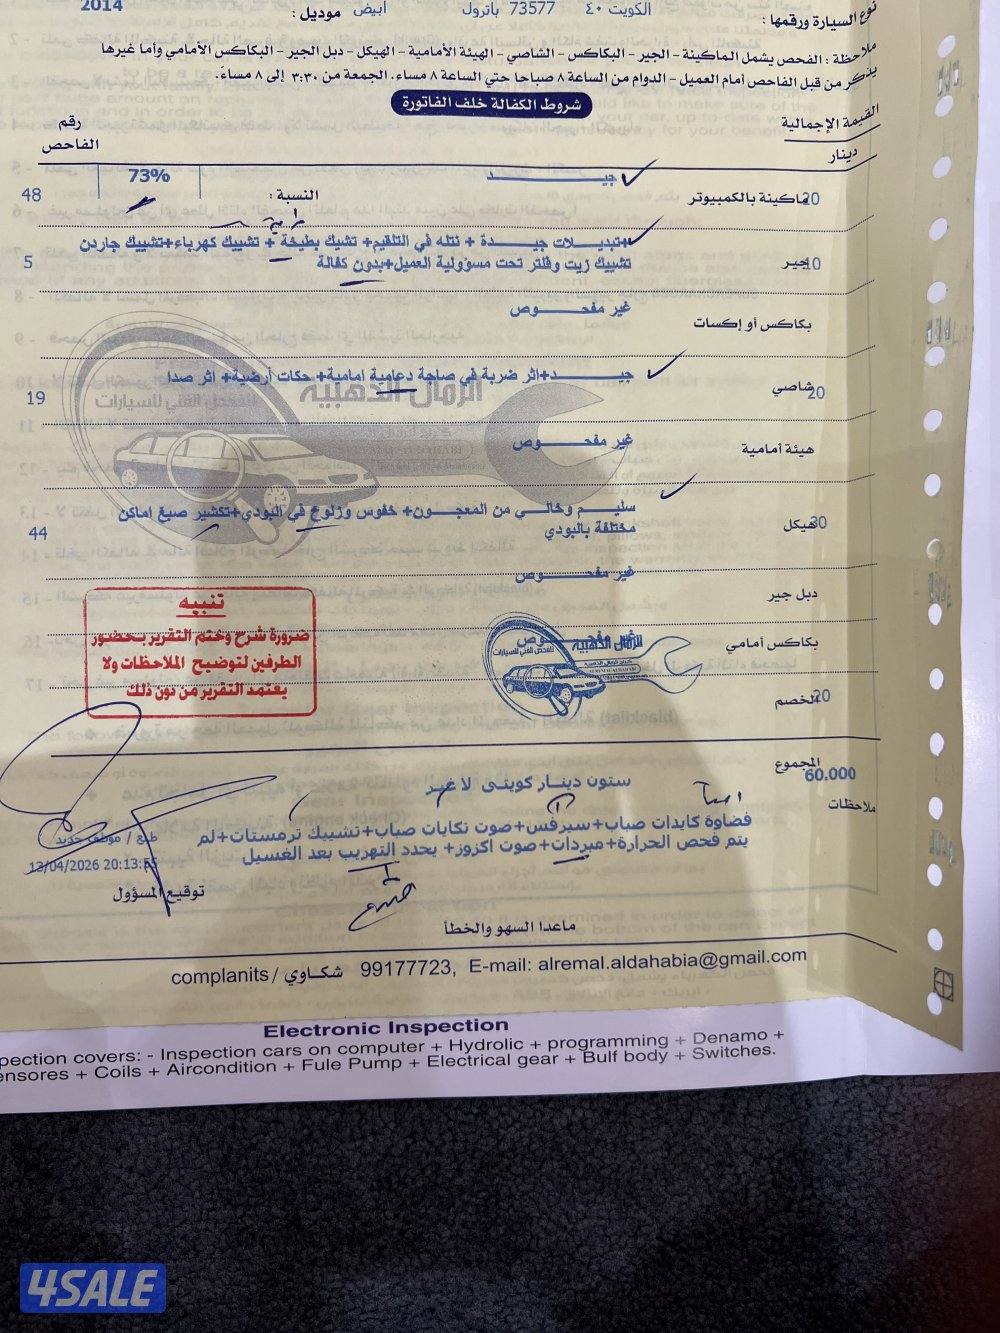 نوع السيارة ورقمها : الكويت ٤٠ 73577 باترول أبيض موديل : 2014
ملاحظة : الفحص يشمل الماكينة - الجير - البكاكس - الشاصي - الهيئة الأمامية - الهيكل - دبل الجير - البكاكس الأمامي وأما غيرها
يذكر من قبل الفاحص أمام العميل - الدوام من الساعة ٨ صباحا حتي الساعة ٨ مساء. الجمعة من ٣:٣٠ إلى ٨ مساء.
شروط الكفالة خلف الفاتورة
القيمة الإجمالية
دينار
رقم
الفاحص
ماكينة بالكمبيوتر 20 جيـــد النسبة : 73% 48
جير 10 +تبديـلات جيـــدة + نتله في التلقيم+ تشيك بطيخة + تشييك كهرباء+تشييك جاردن
تشييك زيت وفلتر تحت مسؤولية العميل+بدون كفالة 5
بكاكس أو إكسات غير مفحــــوص
شاصي 20 جيـــد+اثر ضربة في صاجة دعامية امامية+ حكات أرضية+ اثر صدا 19
الرمال الذهبية
للفحص الفني للسيارات
هيئة أمامية غير مفحــــوص
هيكل 30 سليـم وخالـي من المعجـون+ خفوس وزلوخ في البودي+تكشير صبغ اماكن
مختلفة بالبودي 44
دبل جير غير مفحــــوص
تنبيه
ضرورة شرح وختم التقرير بحضور
الطرفين لتوضيح الملاحظات ولا
يعتمد التقرير من دون ذلك
بكاكس أمامي
الرمال الذهبية
للفحص الفني للسيارات
الخصم 20
المجموع 60.000
ستون دينار كويتى لا غير
ملاحظات
فضاوة كابدات صباب+ سيرفس+صوت تكايات صباب+تشييك ترمستات+لم
يتم فحص الحرارة+مبردات+صوت اكزوز+ يحدد التهريب بعد الغسيل
طبع / موظف جديد
13/04/2026 20:13:55
توقيع المسؤول
ماعدا السهو والخطأ
complanits / شكاوي 99177723, E-mail: alremal.aldahabia@gmail.com
Electronic Inspection
pection covers: - Inspection cars on computer + Hydrolic + programming + Denamo +
ensores + Coils + Aircondition + Fule Pump + Electrical gear + Bulf body + Switches.
4SALE